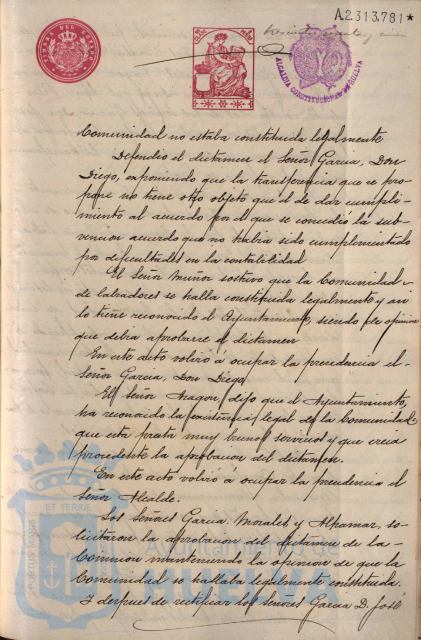 A.2.313.781*
ALCALDIA CONSTITUCIONAL DE HUELVA
Comunidad no estaba constituida legalmente
Defendio el dictamen el Señor Garcia, Don
Diego, exponiendo que la transferencia que se pro-
pone no tiene otro objeto que el de dar cumpli-
miento al acuerdo por el que se concedió la sub-
vencion acuerdo que no habia sido cumplimentado
por dificultades en la contabilidad
El Señor Muñoz sostuvo que la Comunidad
de labradores se halla constituida legalmente y asi
lo tiene reconocido el Ayuntamiento, siendo de opinion
que debia aprobarse el dictamen
En este acto volvió á ocupar la presidencia el
Señor Garcia, Don Diego
El Señor Aragon dijo que el Ayuntamiento,
ha reconocido la existencia legal de la Comunidad
que esta presta muy buenos servicios y que creia
procedente la aprobacion del dictamen.
En este acto volvió á ocupar la presidencia el
Señor Alcalde.
Los Señores Garcia Morales y Alpamar, so-
licitaron la aprobacion del dictamen de la
Comision manteniendo la opinion de que la
Comunidad se hallaba legalmente constituida.
Y despues de rectificar los Señores Garcia D. José
Ayuntamiento de
HUELVA
PORTUS MARIS
ET TERRÆ